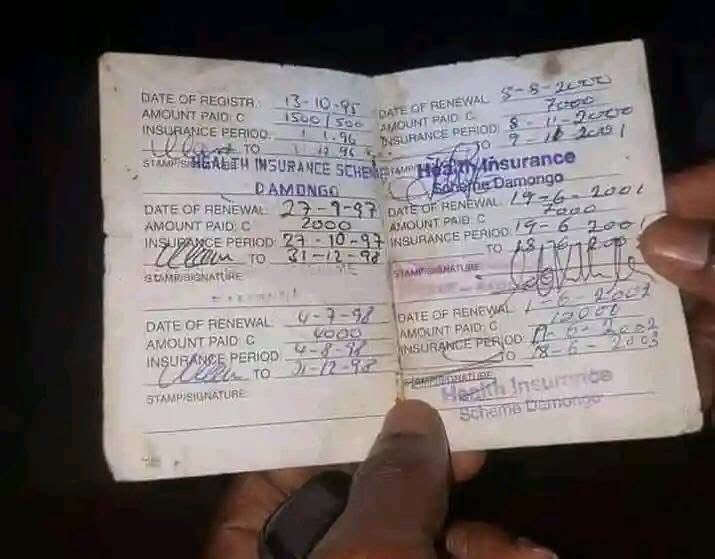 DATE OF REGISTR.: 13-10-95
AMOUNT PAID: C 1500/500
INSURANCE PERIOD: 1.1.96
TO 1.12.96
STAMP/SIGNATURE
HEALTH INSURANCE SCHEME
DAMONGO
DATE OF RENEWAL: 27-9-97
AMOUNT PAID: C 2000
INSURANCE PERIOD: 27-10-97
TO 31-12-98
STAMP/SIGNATURE:
DATE OF RENEWAL: 4-7-98
AMOUNT PAID: C 4000
INSURANCE PERIOD: 4-8-98
TO 31-12-98
STAMP/SIGNATURE:
DATE OF RENEWAL: 8-8-2000
AMOUNT PAID: C 7000
INSURANCE PERIOD: 8-11-2000
TO
STAMP/
Health Insurance
Scheme Damongo
DATE OF RENEWAL: 19-6-2001
AMOUNT PAID: C 7000
INSURANCE PERIOD: 19-6-2001
TO
STAMP/SIGNATURE:
DATE OF RENEWAL: 1-6-2002
AMOUNT PAID: C 10000
INSURANCE PERIOD:
TO 18-6-2003
STAMP/SIGNATURE:
Health Insurance
Scheme Damongo